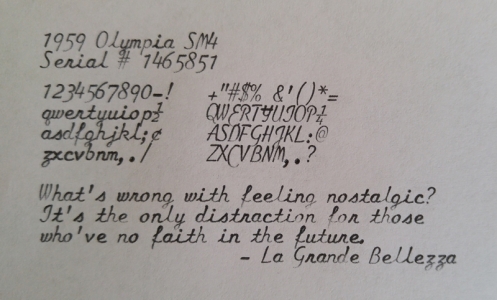 1959 Olympia SM4
Serial # 1465851
1234567890-! +"#$% &'()*=
qwertyuiop½ QWERTYUIOP¼
asdfghjkl;¢ ASDFGHJKL:@
zxcvbnm,./ ZXCVBNM,.?
What's wrong with feeling nostalgic?
It's the only distraction for those
who've no faith in the future.
- La Grande Bellezza